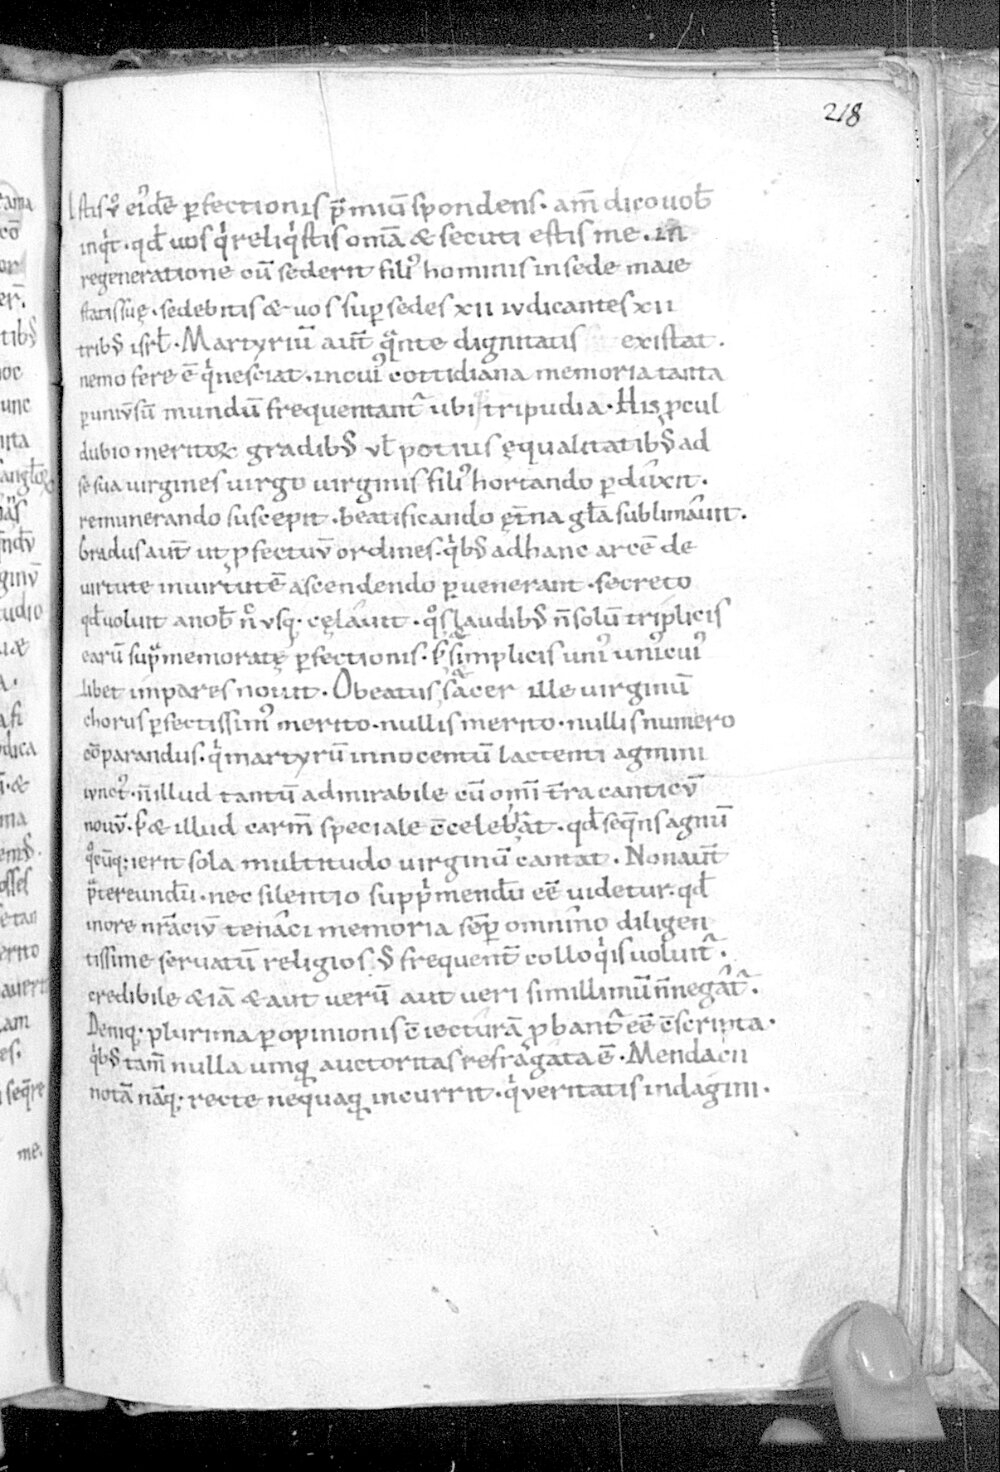 218
Istis ů eiꝰdē pfectionis p̄miū spondens. am̄ dico uob̄
inqͥt. qđ uos qͥ reliqͥstis om̄a & secuti estis me. in
regeneratione cū sederit filiꝰ hominis in sede maie
statis suę. sedebitis & uos sup sedes xii iudicantes xii
tribꝰ isrł. Martyriū aut̄ qͣnte dignitatis existat.
nemo fere ē qͥ nesciat. in cuiꝰ cottidiana memoria tanta
p uniūsū mundū frequentant᷑ ubiq tripudia. His pcul
dubio meritoꝝ gradibꝰ uł potius ęqualitatibꝰ ad
se sua uirgines uirgo uirginis filiꝰ hortando pduxit.
remunerando suscepit. beatificando ęt̄na gła sublimauit.
Gradus aut̄ ut pfectuū ordines. qͥbꝰ ad hanc arcē de
uirtute in uirtutē ascendendo peruenerant. secreto
qđ uoluit a nob̄ n̄ usq. cęlauit. qͦs laudibꝰ n̄ solū triplicis
earū supͣmemoratę pfectionis. s; simplicis uniꝰ unicuiꝰ
libet impares nouit. O beatus sacer ille uirginū
chorus pfectissimꝰ merito. nullis merito. nullis numero
cōparandus. qͥ martyrū innocentū lactenti agmini
iunctꝰ. n̄ illud tantū admirabile cū om̄i t̄ra canticū
nouū. s; & illud carm̄ speciale c̄celebͣt. qđ seq̄ns agnū
qͦcūq; ierit sola multitudo uirginū cantat. Non aut̄
p̄tereundū. nec silentio suppͥmendū eē uidetur. qđ
more nr̄aciū tenaci memoria sēp omnino diligen
tissime seruatū religiosꝰ frequent̄ colloqͥis uoluit᷑.
credibile & iā & aut uerū aut ueri simillimū n̄ negat᷑.
Deniq; plurima p opinionis c̄iecturā pbant᷑ eē c̄scripta.
qͥbꝰ tam̄ nulla umq auctoritas refragata ē. Mendacii
notā nāq; recte nequaq incurrit. qͥ veritatis indagini.